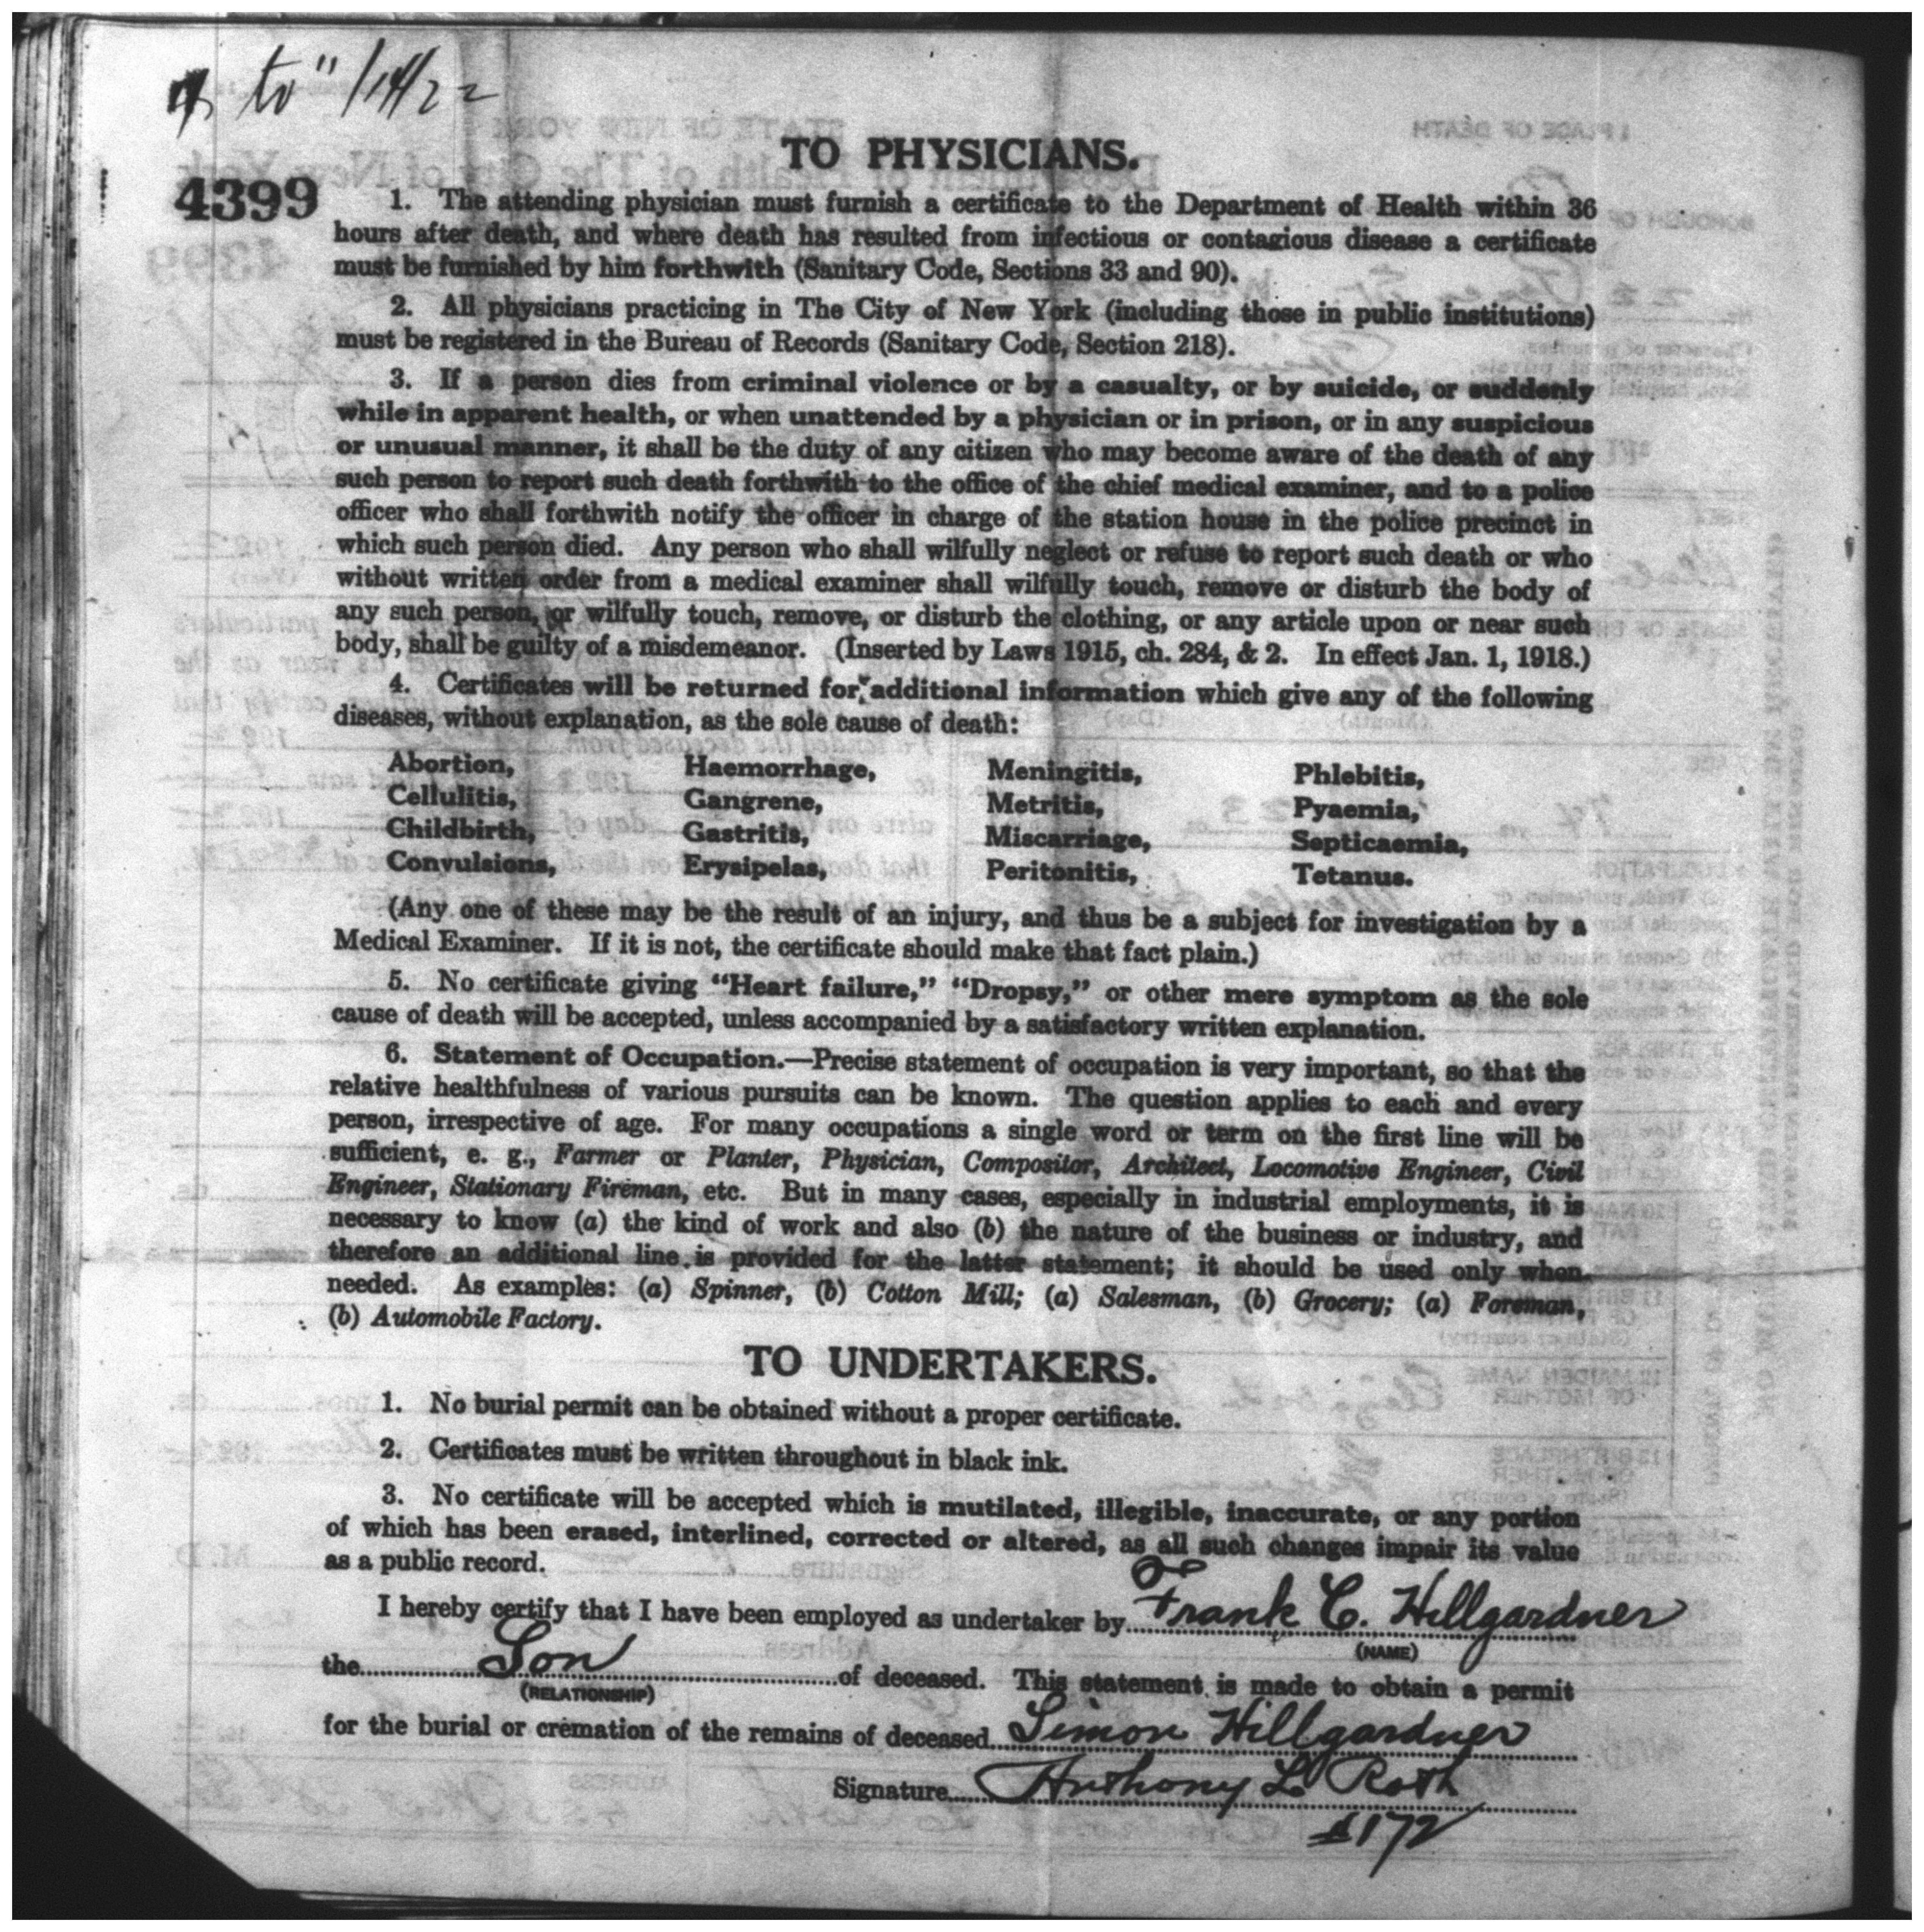 to" 11/14/22
4399
TO PHYSICIANS.
1. The attending physician must furnish a certificate to the Department of Health within 36
hours after death, and where death has resulted from infectious or contagious disease a certificate
must be furnished by him forthwith (Sanitary Code, Sections 33 and 90).
2. All physicians practicing in The City of New York (including those in public institutions)
must be registered in the Bureau of Records (Sanitary Code, Section 218).
3. If a person dies from criminal violence or by a casualty, or by suicide, or suddenly
while in apparent health, or when unattended by a physician or in prison, or in any suspicious
or unusual manner, it shall be the duty of any citizen who may become aware of the death of any
such person to report such death forthwith to the office of the chief medical examiner, and to a police
officer who shall forthwith notify the officer in charge of the station house in the police precinct in
which such person died. Any person who shall wilfully neglect or refuse to report such death or who
without written order from a medical examiner shall wilfully touch, remove or disturb the body of
any such person, or wilfully touch, remove, or disturb the clothing, or any article upon or near such
body, shall be guilty of a misdemeanor. (Inserted by Laws 1915, ch. 284, & 2. In effect Jan. 1, 1918.)
4. Certificates will be returned for additional information which give any of the following
diseases, without explanation, as the sole cause of death:
Abortion, Haemorrhage, Meningitis, Phlebitis,
Cellulitis, Gangrene, Metritis, Pyaemia,
Childbirth, Gastritis, Miscarriage, Septicaemia,
Convulsions, Erysipelas, Peritonitis, Tetanus.
(Any one of these may be the result of an injury, and thus be a subject for investigation by a
Medical Examiner. If it is not, the certificate should make that fact plain.)
5. No certificate giving "Heart failure," "Dropsy," or other mere symptom as the sole
cause of death will be accepted, unless accompanied by a satisfactory written explanation.
6. Statement of Occupation.—Precise statement of occupation is very important, so that the
relative healthfulness of various pursuits can be known. The question applies to each and every
person, irrespective of age. For many occupations a single word or term on the first line will be
sufficient, e. g., Farmer or Planter, Physician, Compositor, Architect, Locomotive Engineer, Civil
Engineer, Stationary Fireman, etc. But in many cases, especially in industrial employments, it is
necessary to know (a) the kind of work and also (b) the nature of the business or industry, and
therefore an additional line is provided for the latter statement; it should be used only when
needed. As examples: (a) Spinner, (b) Cotton Mill; (a) Salesman, (b) Grocery; (a) Foreman,
(b) Automobile Factory.
TO UNDERTAKERS.
1. No burial permit can be obtained without a proper certificate.
2. Certificates must be written throughout in black ink.
3. No certificate will be accepted which is mutilated, illegible, inaccurate, or any portion
of which has been erased, interlined, corrected or altered, as all such changes impair its value
as a public record.
I hereby certify that I have been employed as undertaker by Frank C. Hillgardner
(NAME)
the Son of deceased. This statement is made to obtain a permit
(RELATIONSHIP)
for the burial or cremation of the remains of deceased Simon Hillgardner
Signature Anthony L Roth
#172